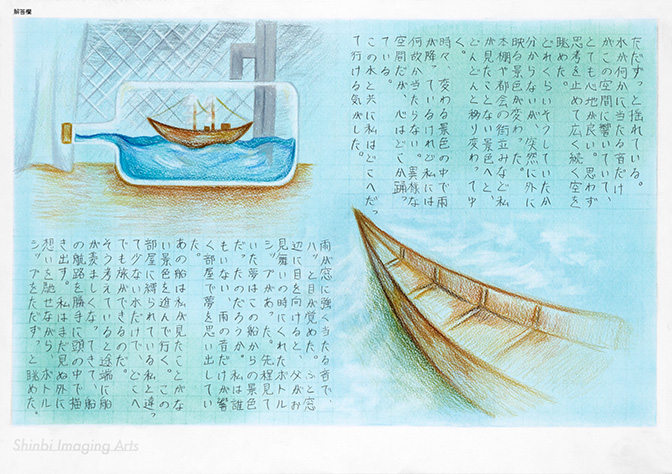 解答欄
ただずっと揺れている。
水が何かに当たる音だけ
がこの空間に響いていて、
とても心地が良い。思わず
思考を止めて広く続く空を
眺めた。
どれくらいそうしていたか
分からないが、突然に外に
映る景色が変わった。
本棚や都会の街並みなど私
が見たことない景色へと、
どんどんと移り変わってゆ
く。
時々、変わる景色の中で雨
が降っているけれど私には
何故か当たらない。異様な
空間だが、心はどこか踊る。
この水と共に私はどこへだっ
て行ける気がした。
雨が窓に強く当たる音で、
ハッと目が覚めた。ふと窓
辺に目をやると、父がお
見舞いの時にくれたボトル
シップがあった。先程見て
いた夢はこの船からの景色
だったのだろうか。私は誰
もいない、雨の音だけが響
く部屋で夢を思い出してい
た。
あの船は私が見たことがな
い景色を進んで行く。この
部屋に縛られている私と違っ
て少ない水だけで、どこへ
でも旅ができるのだ。
そう考えていると途端に船
が羨ましくなって、船
の航路を勝手に頭の中で描
き出す。私はまだ見ぬ外に
想いを馳せながら、ボトル
シップをただずっと眺めた。
Shinbi Imaging Arts